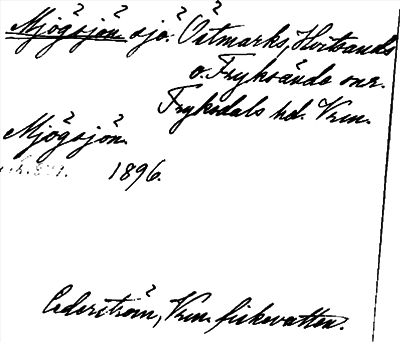 Mjögsjön sjö. Östmarks, Hvitsands
o. Fryksände snr.
Fryksdals hd. Vrm.
Mjögsjön.
1896.
Cederström, Vrm. fiskevatten.